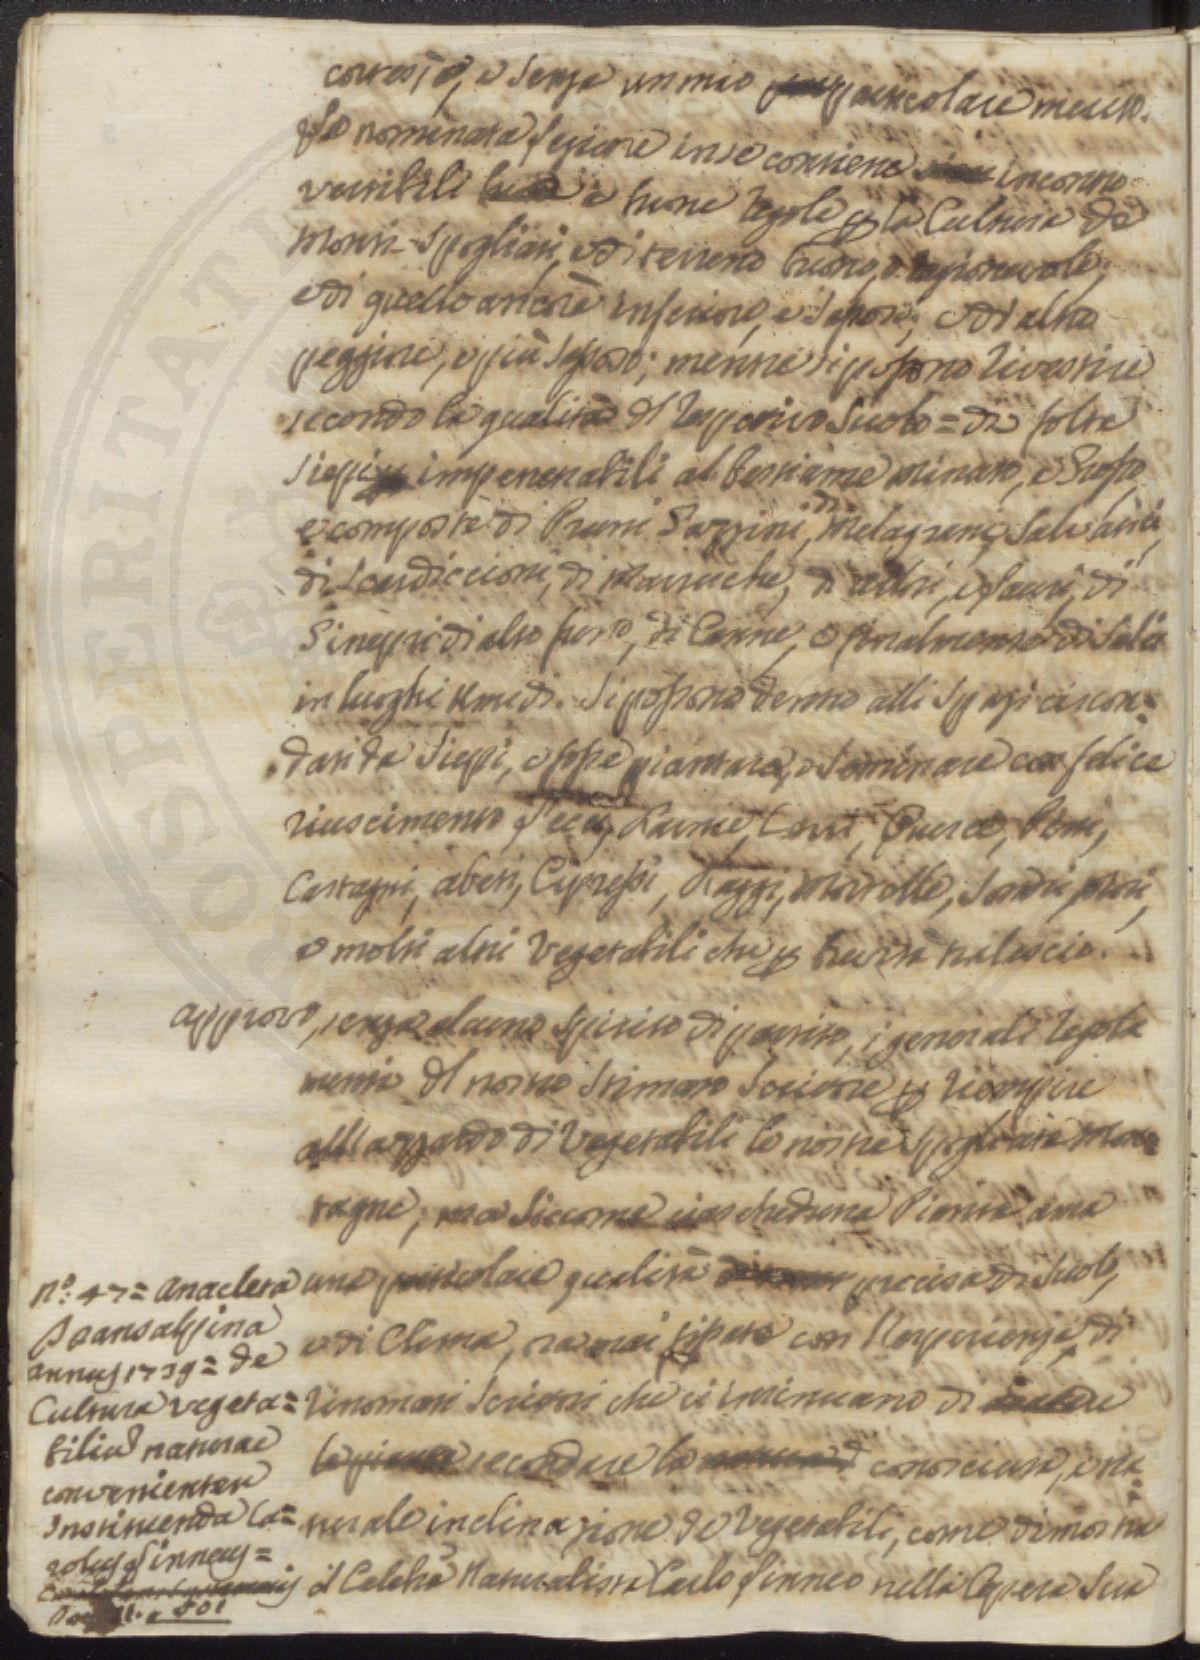 cortesia, e senza un mio particolare merito.
La nominata Lezione in se contiene incontro=
vertibili e buone regole p la Cultura de
Monti Spogliati, e di terreno buono, o ragionevole,
e di quello ancora inferiore, e sassoso, e di altro
peggiore, e più sassoso; mentre si possono rivestire
secondo la qualità del respettivo Suolo = di folte
Siepi impenetrabili al bestiame minuto, e Grosso
e composte di Pruni Gazzini, di Melagrani, Salvatici,
di Scardiccioni, di Marruche, di
Ginepri di alto fusto, di Canne, e finalmente di Salci
in luoghi umidi. Si possono dentro alli Spazi circon=
dati da Siepi, e fosse piantare, e seminare con felice
riuscimento Lecci, Farnie, Cerri, Querce, Pini,
Castagni, abeti, Cipressi, Faggi, Mortelle,
e molti altri Vegetabili che p brevità tralascio.
Approvo, senza alcuno spirito di partito, i generali regola
menti del nostro Stimato Scrittore p riempire
all'azzardo di Vegetabili le nostre spogliate Mon=
tagne; ma siccome ciascheduna Pianta ama
una particolare qualità precisa di Suolo,
e di Clima, con l'esperienza di
rinomati Scrittori che ci insinuano di
secondare la conosciuta, e na=
turale inclinazione de Vegetabili, come dimostra
il Celebre Naturalista Carlo Linneo nella Opera Sua
n.o 47 = Anacleta
Transalpina
annus 1739 = de
Cultura vegeta=
bilium naturae
convenienter
Instituenda Ca=
rolus Linneus =